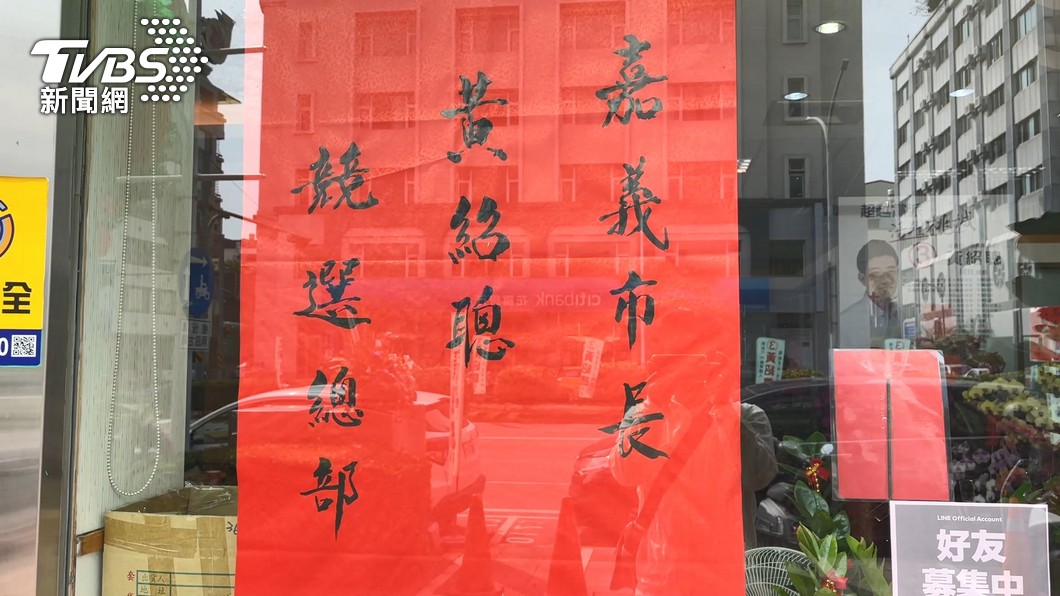 TVBS
新聞網
嘉義市長
黃紹聰
競選總部
citibank
全
0
LINE Official Account
好友
募集中